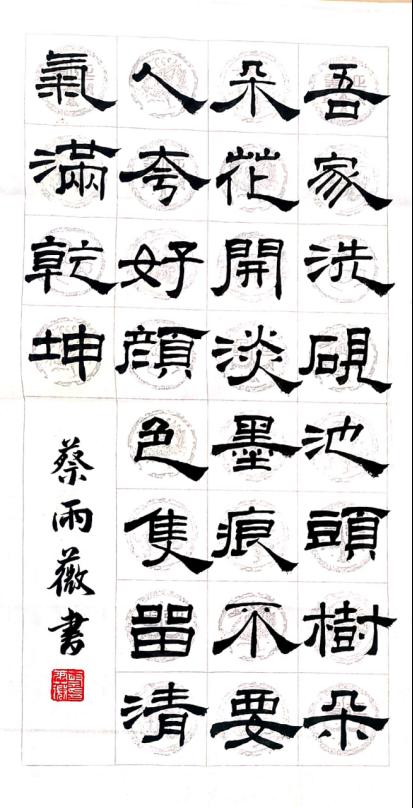 吾家洗硯池頭樹朵
朵花開淡墨痕不要
人夸好顔色隻留清
氣滿乾坤
蔡雨薇書